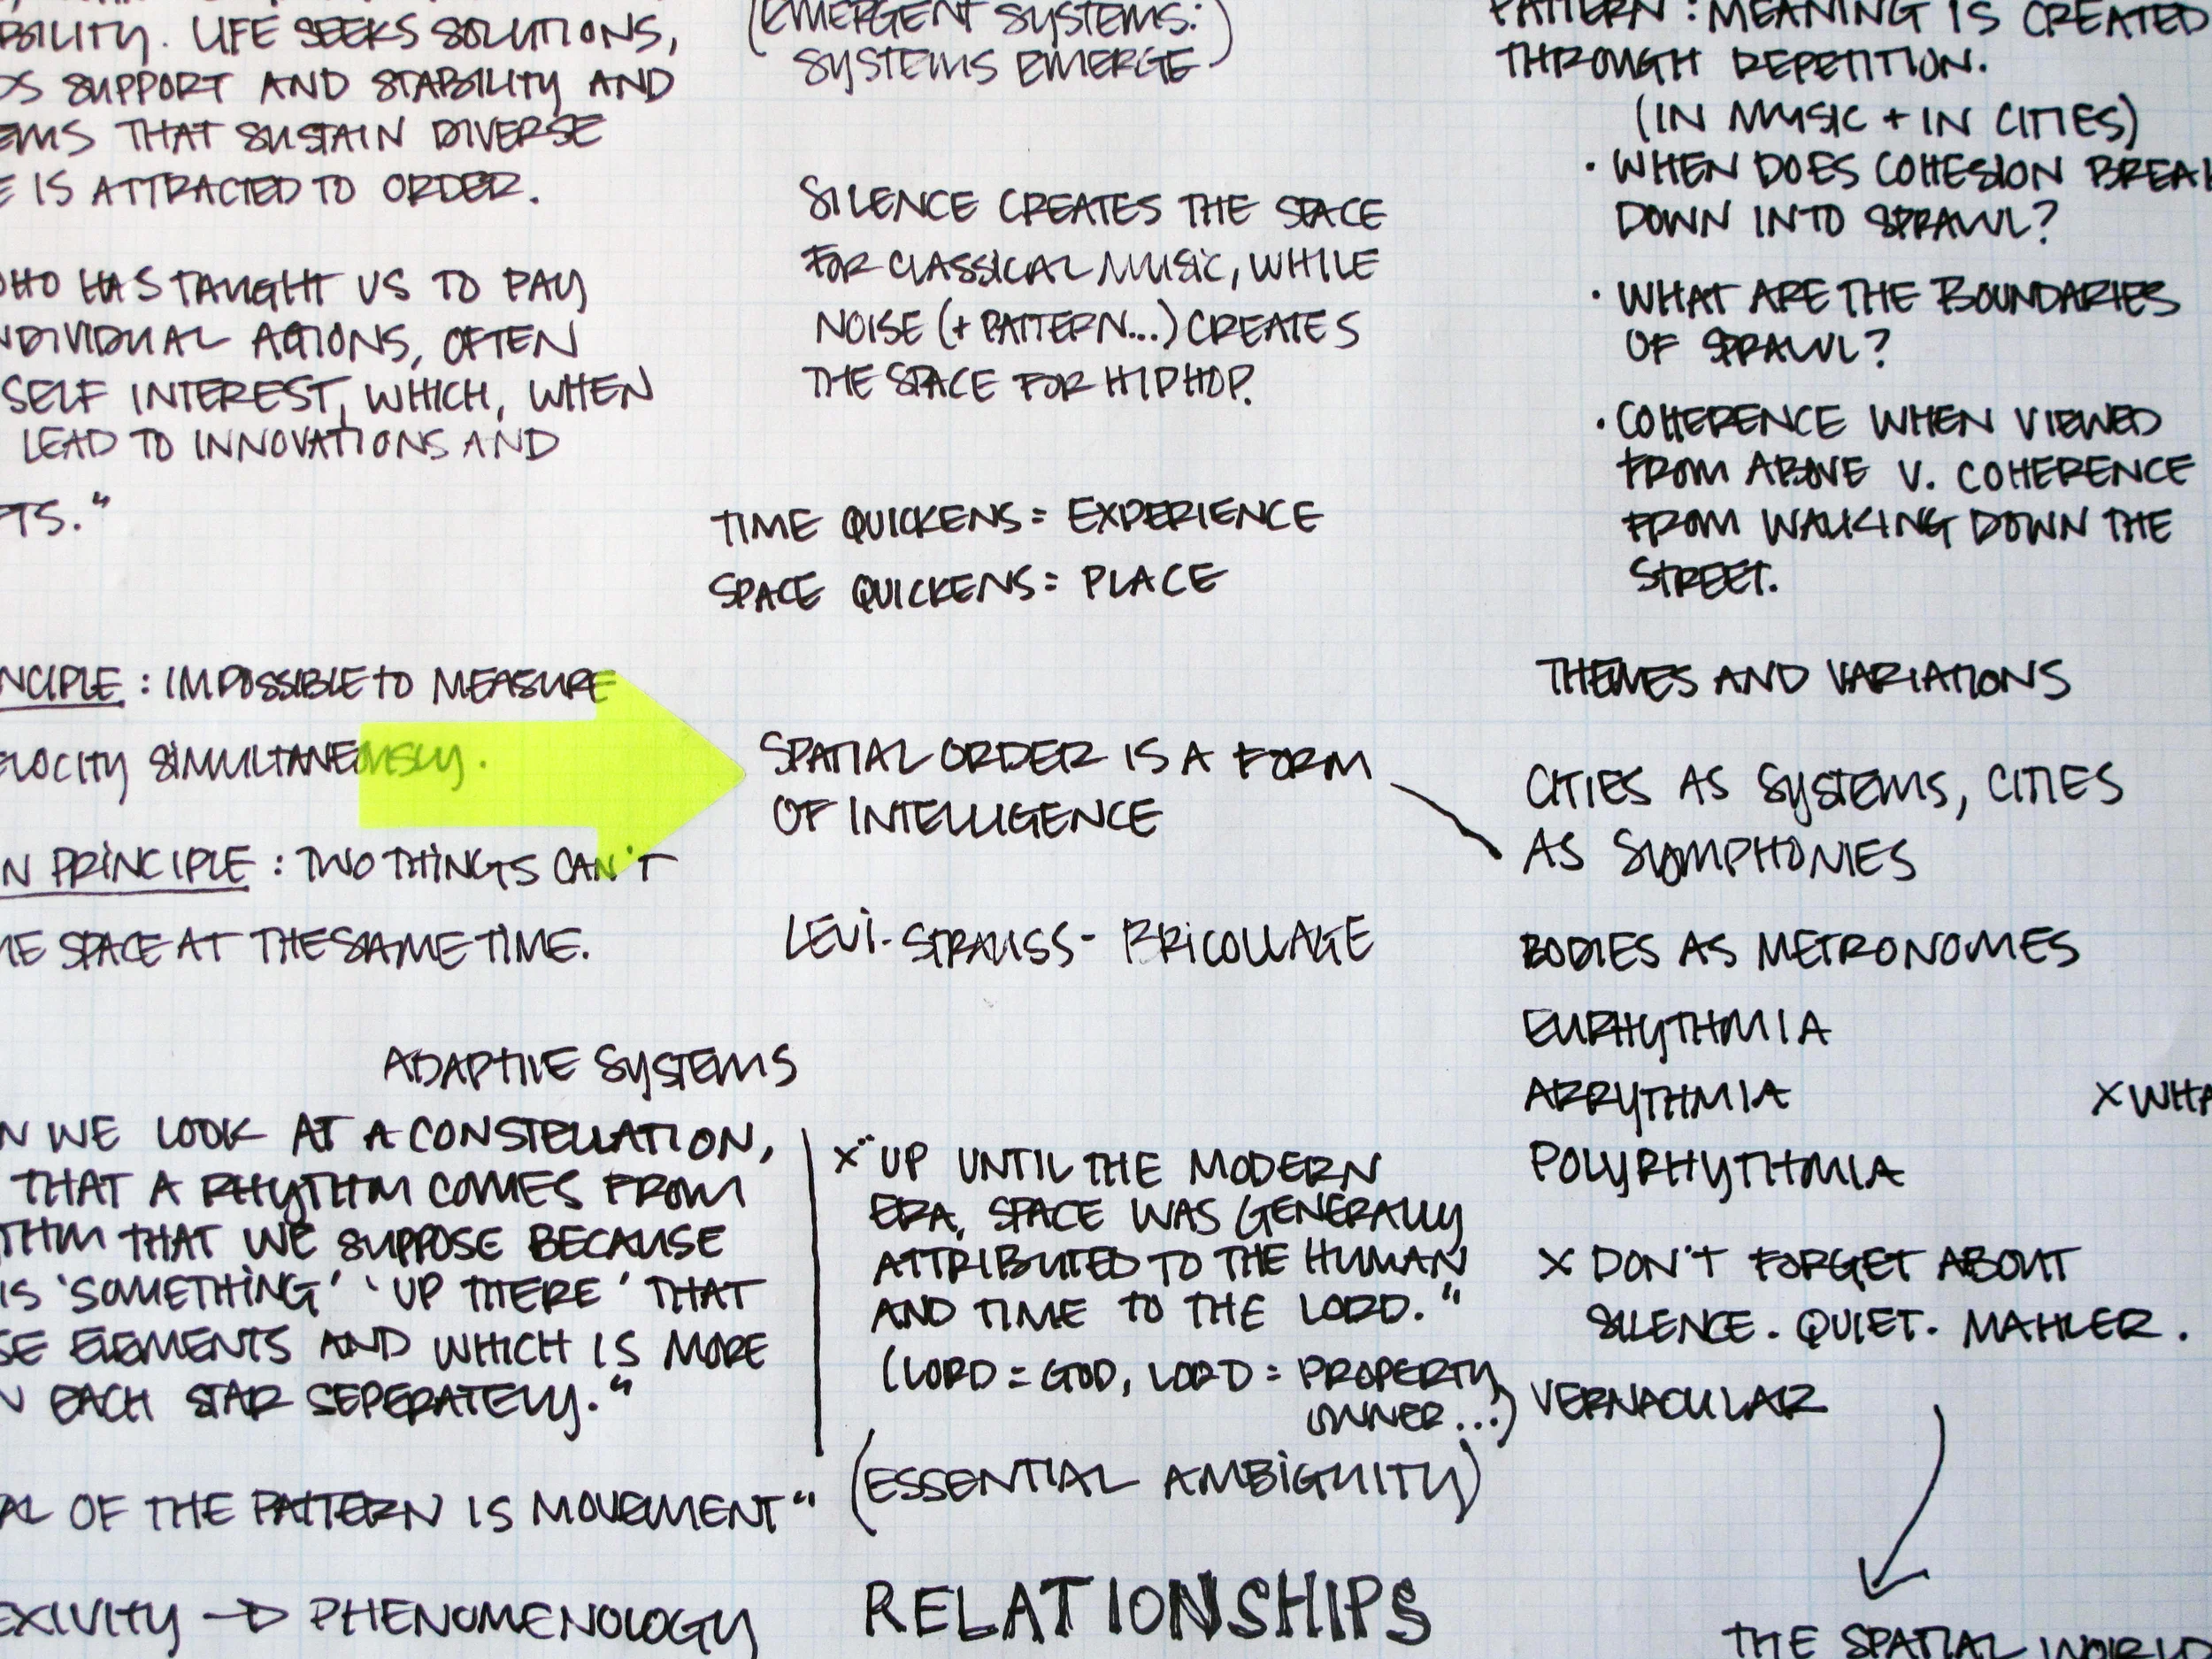 BILITY. LIFE SEEKS SOLUTIONS,
DS SUPPORT AND STABILITY AND
EMS THAT SUSTAIN DIVERSE
E IS ATTRACTED TO ORDER.
WHO HAS TAUGHT US TO PAY
NDIVIDUAL ACTIONS, OFTEN
SELF INTEREST, WHICH, WHEN
LEAD TO INNOVATIONS AND
TS."
NCIPLE : IMPOSSIBLE TO MEASURE
ELOCITY SIMULTANEOUSLY.
N PRINCIPLE : TWO THINGS CAN'T
ME SPACE AT THE SAME TIME.
ADAPTIVE SYSTEMS
N WE LOOK AT A CONSTELLATION,
THAT A RHYTHM COMES FROM
THM THAT WE SUPPOSE BECAUSE
IS 'SOMETHING' 'UP THERE' THAT
SE ELEMENTS AND WHICH IS MORE
N EACH STAR SEPERATELY."
AL OF THE PATTERN IS MOVEMENT"
EXIVITY → PHENOMENOLOGY
(EMERGENT SYSTEMS:
SYSTEMS EMERGE)
SILENCE CREATES THE SPACE
FOR CLASSICAL MUSIC, WHILE
NOISE (+ PATTERN...) CREATES
THE SPACE FOR HIP HOP.
TIME QUICKENS = EXPERIENCE
SPACE QUICKENS = PLACE
SPATIAL ORDER IS A FORM
OF INTELLIGENCE
LEVI-STRAUSS - BRICOLLAGE
X "UP UNTIL THE MODERN
ERA, SPACE WAS GENERALLY
ATTRIBUTED TO THE HUMAN
AND TIME TO THE LORD."
(LORD = GOD, LORD = PROPERTY
OWNER...)
(ESSENTIAL AMBIGUITY)
RELATIONSHIPS
PATTERN : MEANING IS CREATED
THROUGH REPETITION.
(IN MUSIC + IN CITIES)
• WHEN DOES COHESION BREAK
DOWN INTO SPRAWL?
• WHAT ARE THE BOUNDARIES
OF SPRAWL?
• COHERENCE WHEN VIEWED
FROM ABOVE V. COHERENCE
FROM WALKING DOWN THE
STREET.
THEMES AND VARIATIONS
CITIES AS SYSTEMS, CITIES
AS SYMPHONIES
BODIES AS METRONOMES
EURHYTHMIA
ARRYTHMIA
X WHA
POLYRHYTHMIA
X DON'T FORGET ABOUT
SILENCE. QUIET. MAHLER.
VERNACULAR
THE SPATIAL WORLD